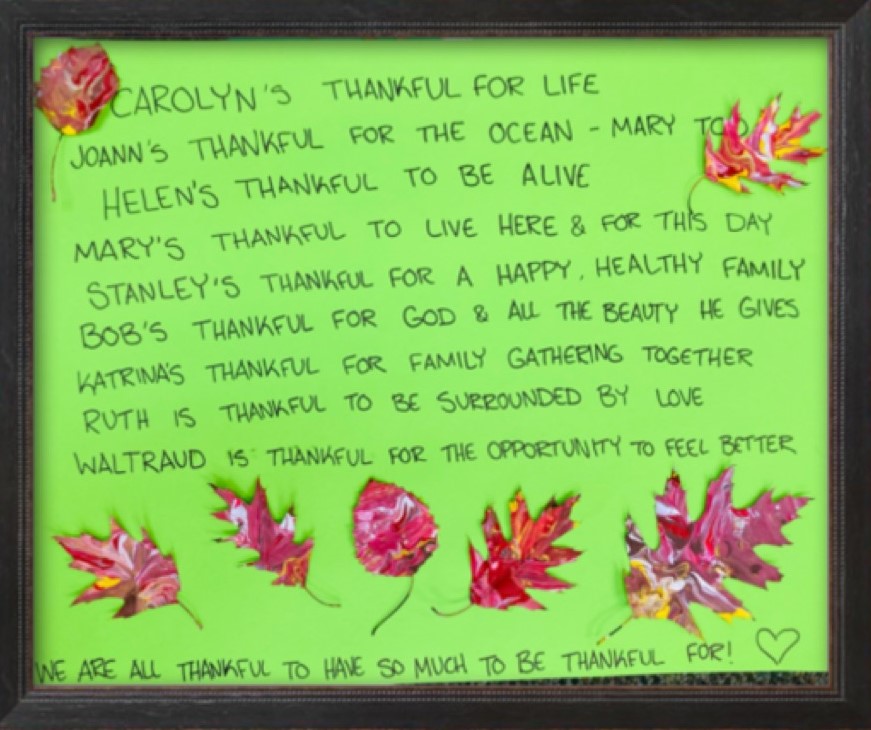 CAROLYN'S THANKFUL FOR LIFE
JOANN'S THANKFUL FOR THE OCEAN - MARY TOO
HELEN'S THANKFUL TO BE ALIVE
MARY'S THANKFUL TO LIVE HERE & FOR THIS DAY
STANLEY'S THANKFUL FOR A HAPPY, HEALTHY FAMILY
BOB'S THANKFUL FOR GOD & ALL THE BEAUTY HE GIVES
KATRINA'S THANKFUL FOR FAMILY GATHERING TOGETHER
RUTH IS THANKFUL TO BE SURROUNDED BY LOVE
WALTRAUD IS THANKFUL FOR THE OPPORTUNITY TO FEEL BETTER
WE ARE ALL THANKFUL TO HAVE SO MUCH TO BE THANKFUL FOR!